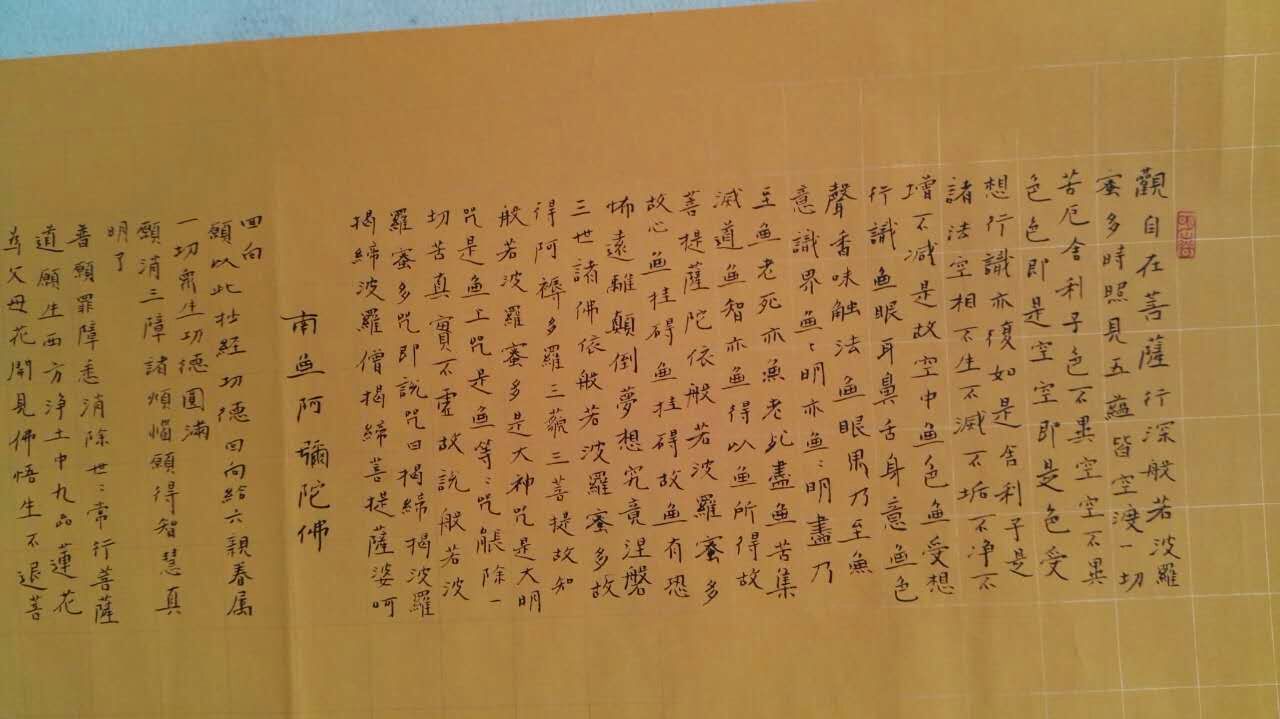 觀自在菩薩行深般若波羅
蜜多時照見五蘊皆空渡一切
苦厄舍利子色不異空空不異
色色即是空空即是色受
想行識亦復如是舍利子是
諸法空相不生不滅不垢不净不
增不减是故空中無色無受想
行識無眼耳鼻舌身意無色
聲香味触法無眼界乃至無
意識界無〻明亦無〻明盡乃
至無老死亦無老死盡無苦集
滅道無智亦無得以無所得故
菩提薩陀依般若波羅蜜多
故心無挂碍無挂碍故無有恐
怖遠離顛倒夢想究竟涅磐
三世諸佛依般若波羅蜜多故
得阿褥多羅三藐三菩提故知
般若波羅蜜多是大神咒是大明
咒是無上咒是無等〻咒能除一
切苦真實不虛故說般若波
羅蜜多咒即說咒曰揭締揭波羅
揭締波羅僧揭締菩提薩婆呵
南無阿彌陀佛
回向
願以此抄经功德回向給六親眷属
一切眾生功德圓滿
願消三障諸煩惱願得智慧真
明了
普願罪障悉消除世〻常行菩薩
道願生西方净土中九品蓮花
為父母花開見佛悟生不退菩